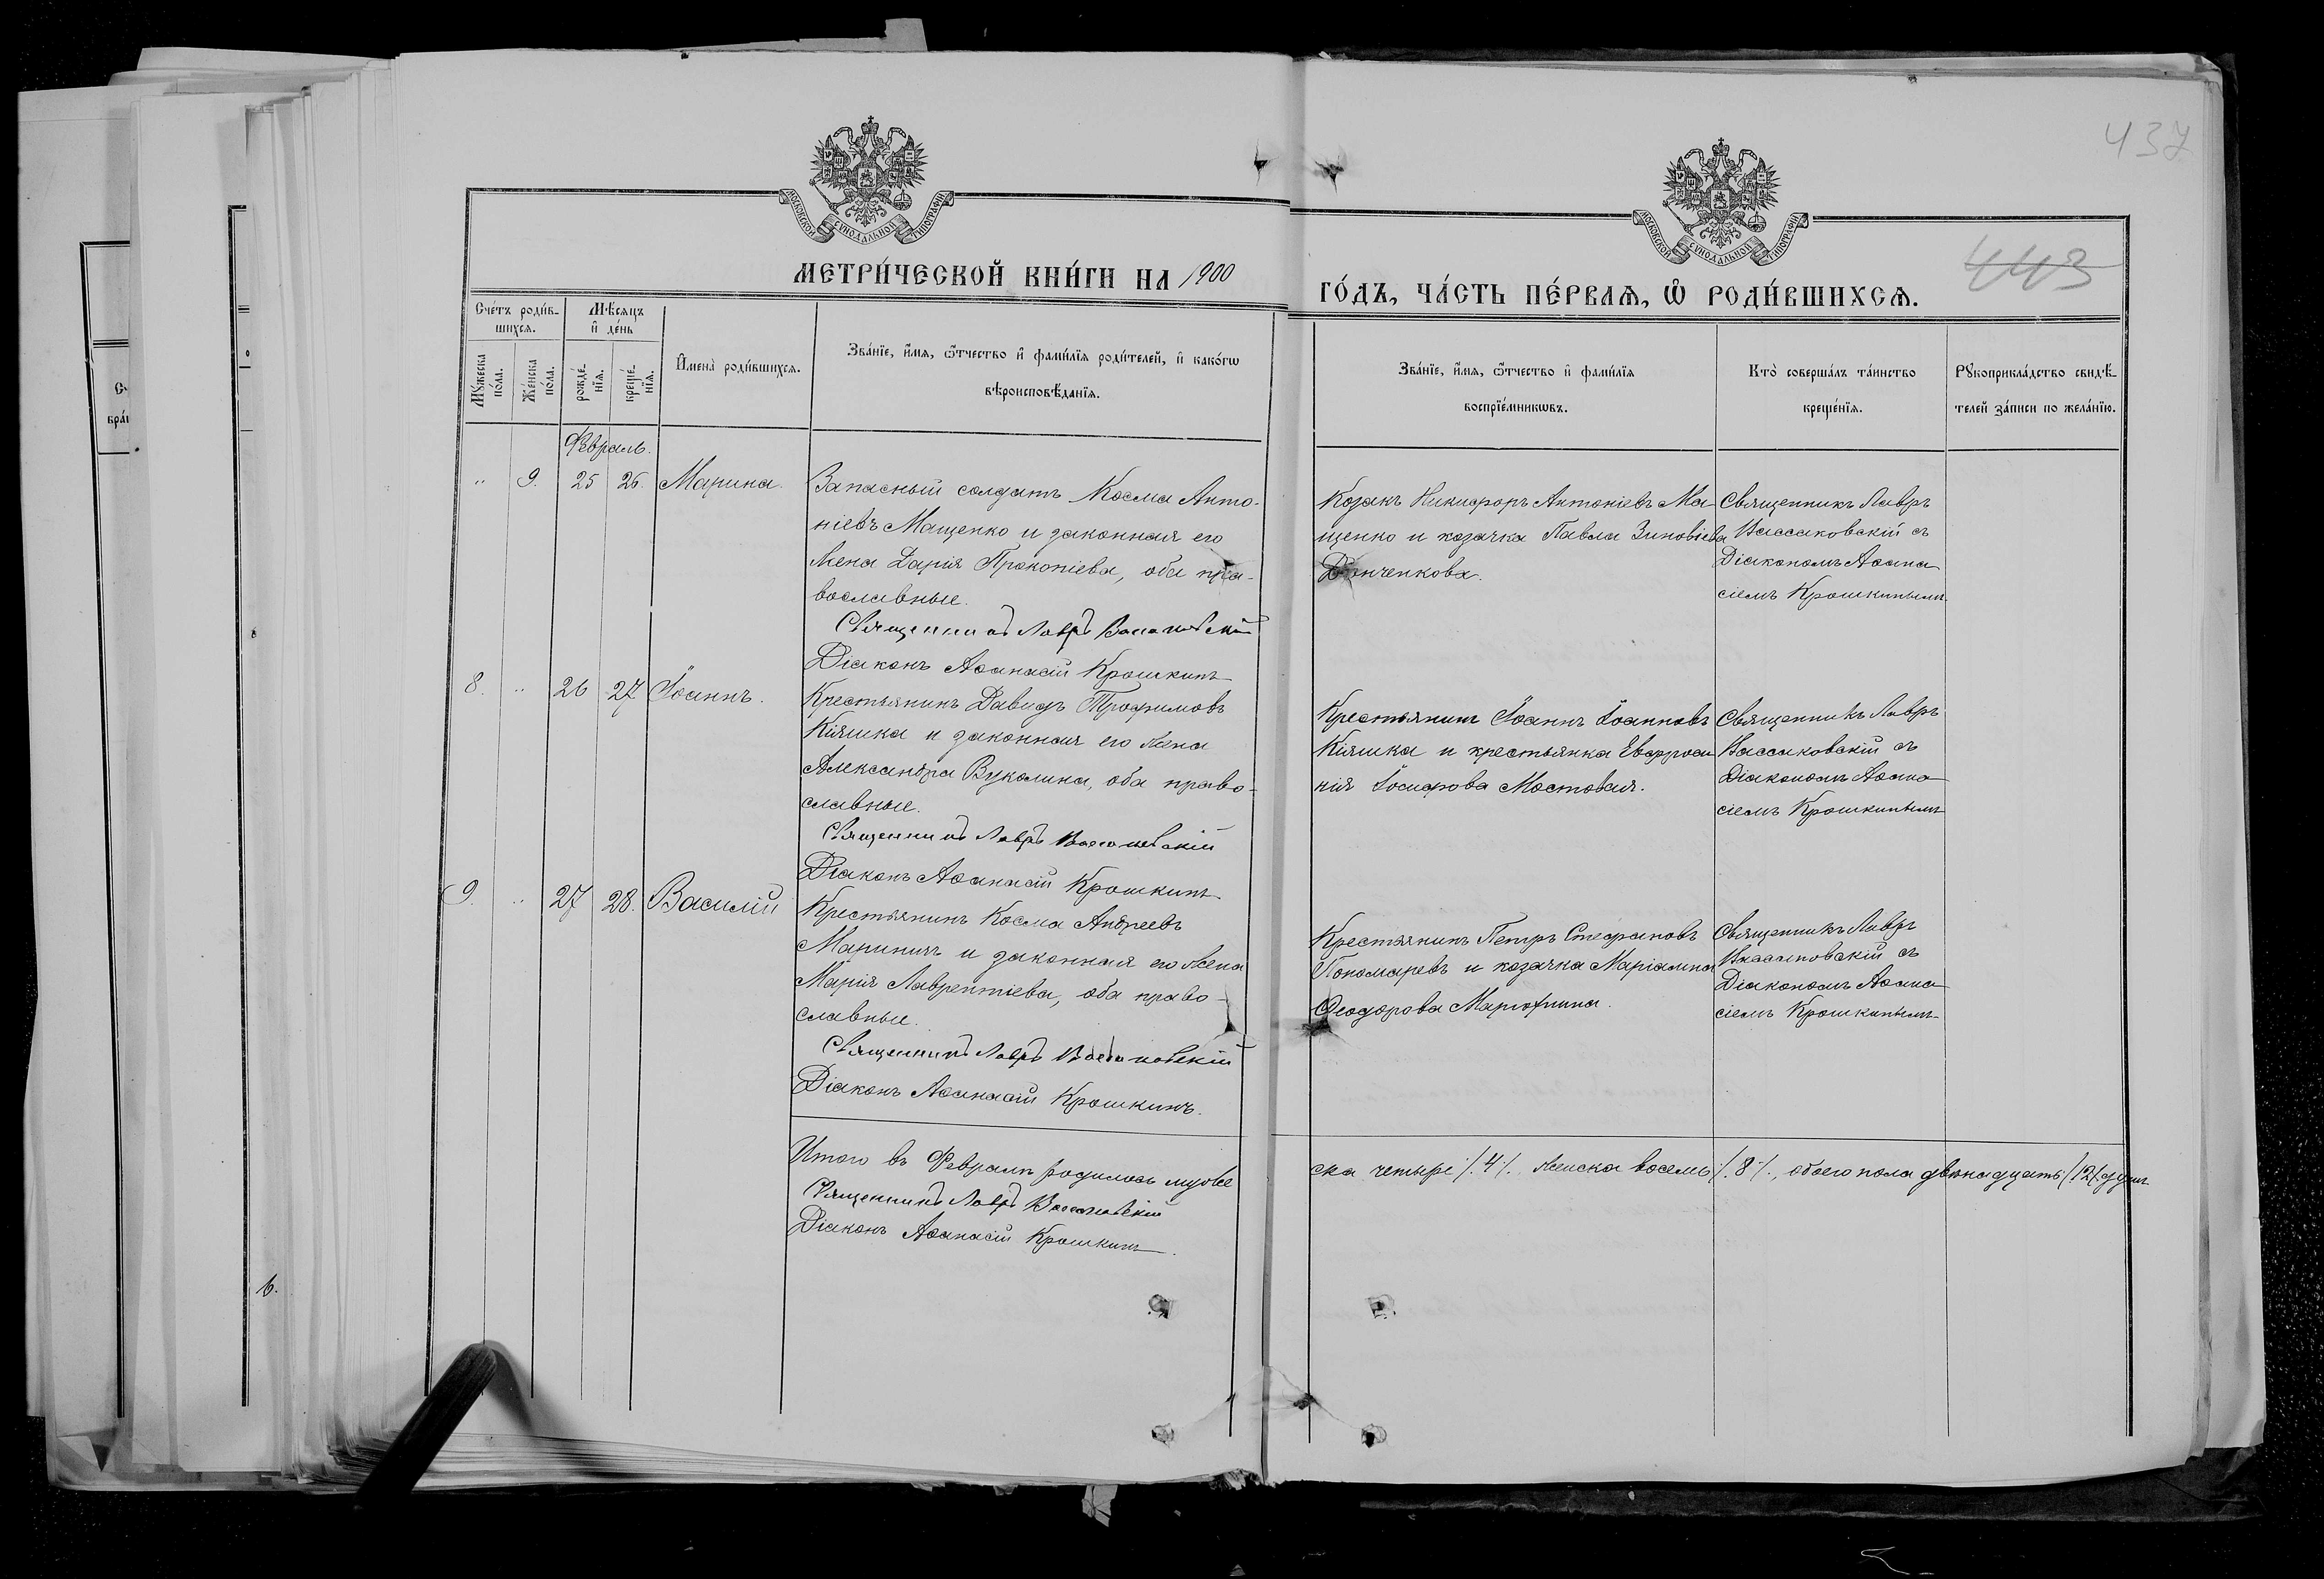 437
443
МОСКОВСКОЙ СУНОДАЛЬНОЙ ТИПОГРАФІИ
МОСКОВСКОЙ СУНОДАЛЬНОЙ ТИПОГРАФІИ
МЕТРИ́ЧЕСКОЙ КНИ́ГИ НА 1900
ГО́ДЪ, ЧА́СТЬ ПЕ́РВАѦ, Ѡ҆ РОДИ́ВШИХСѦ.
Сче́тъ роди́в-
шихсѧ.
Мꙋ́жеска
по́ла.
Же́нска
по́ла.
Мѣ́сѧцъ
и҆ де́нь
рожде́-
нїѧ.
креще́-
нїѧ.
И҆мена̀ роди́вшихсѧ.
Зва́нїе, и҆́мѧ, ѻ҆́тчество и҆ фами́лїѧ роди́телей, и҆ како́гѡ
вѣроисповѣ́данїѧ.
Зва́нїе, и҆́мѧ, ѻ҆́тчество и҆ фами́лїѧ
воспрїе́мникѡвъ.
Кто̀ соверша́лъ та́инство
креще́нїѧ.
Рꙋкоприкла́дство свидѣ́-
телей за́писи по жела́нїю.
Февраль.
" 9. 25 26. Марина.
Запасный солдатъ Косма Анто-
ніевъ Мащенко и законная его
жена Дарія Прокопіева, оба пра-
вославные.
Священникъ Лавръ
Діаконъ Аѳанасій Крошкинъ
Козакъ Никифоръ Антоніевъ Ма-
щенко и козачка Павла Зиновіева
Донченкова.
Священникъ Лавръ
съ
Діакономъ Аѳана
сіемъ Крошкинымъ
8. " 26 27 Іоаннъ.
Крестьянинъ Давидъ Трофимовъ
Кіяшка и законная его жена
Александра Вуколина, оба право-
славные.
Священникъ Лавръ
Діаконъ Аѳанасій Крошкинъ
Крестьянинъ Іоаннъ Іоанновъ
Кіяшка и крестьянка Евфроси
нія Іосифова Мостовая.
Священникъ Лавръ
съ
Діакономъ Аѳана
сіемъ Крошкинымъ
9. " 27 28. Василій
Крестьянинъ Косма Андреевъ
Мариничъ и законная его жена
Марія Лаврентіева, оба право-
славные.
Священникъ Лавръ
Діаконъ Аѳанасій Крошкинъ.
Крестьянинъ Петръ Стефановъ
Пономаревъ и козачка Маріамна
Ѳеодорова
Священникъ Лавръ
съ
Діакономъ Аѳана
сіемъ Крошкинымъ
Итого въ Февралѣ родилось муже
ска четыре /.4./. женска восемь /.8./., обоего пола двѣнадцать /.12./. душъ
Священникъ Лавръ
Діаконъ Аѳанасій Крошкинъ.